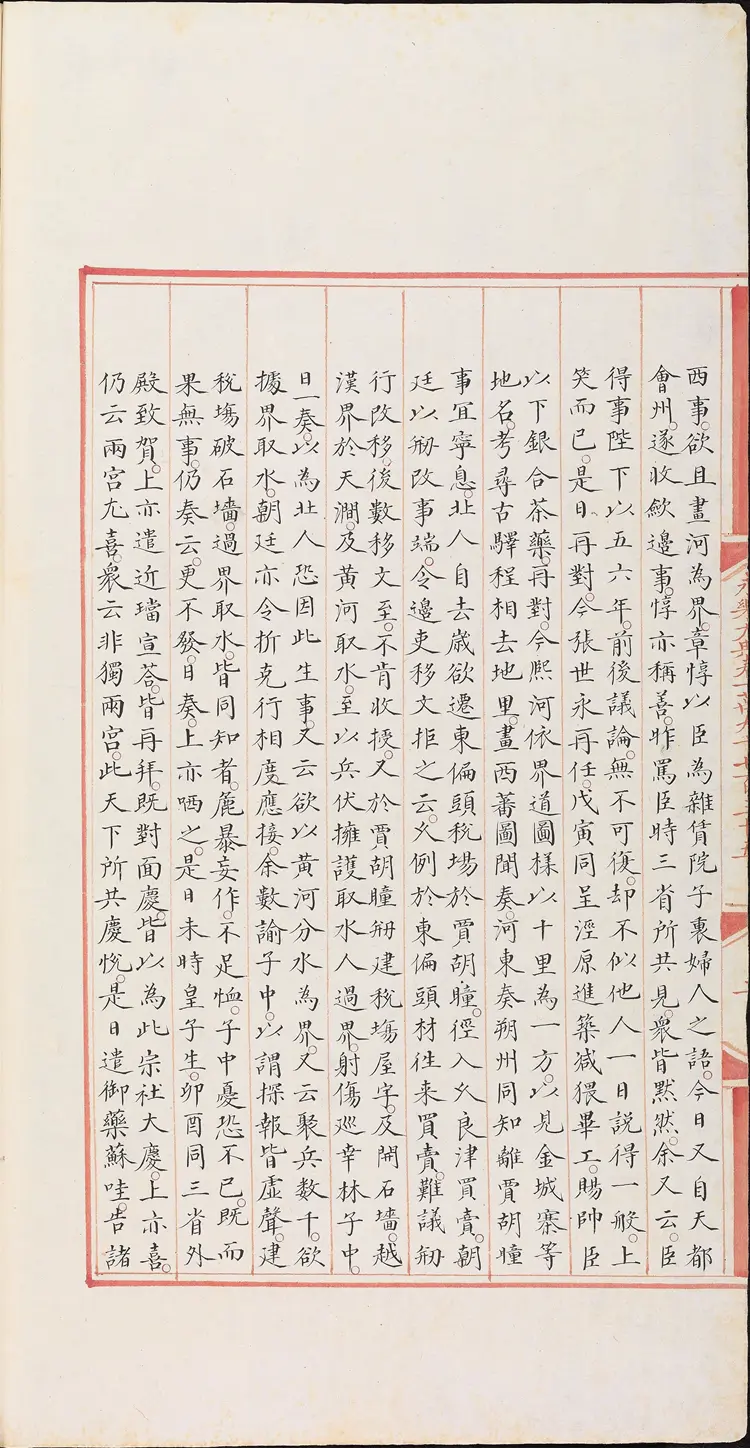 西事。欲且畫河為界。章惇以臣為雜賃院子裏婦人之語。今日又自天都
會州。遂收歛邊事。惇亦稱善。昨罵臣時三省所共見。衆皆黙然。余又云。臣
得事陛下以五六年。前後議論。無不可復。却不似他人一日説得一般。上
笑而已。是日再對。今張世永再任。戊寅同呈涇原進築减猥畢工。賜帥臣
以下銀合茶藥。再對。今熙河依界道圖樣以十里為一方。以見金城寨等
地名。考尋古驛程相去地里。畫西蕃圖聞奏。河東奏朔州同知離賈胡疃
事冝寧息。北人自去歲欲遷東偏頭税場於賈胡疃。徑入乆良津買賣。朝
廷以刱改事端。令邊吏移文拒之云。乆例於東偏頭材徃来買賣。難議刱
行改移。後數移文至。不肯收授。又於賈胡疃刱建税塲屋字。及開石墻。越
漢界於天澗。及黄河取水。至以兵伏擁護取水人過界。射傷巡幸林子中。
日一奏。以為北人恐因此生事。又云欲以黄河分水為界。又云聚兵数千。欲
據界取水。朝廷亦令折克行相度應接。余數諭子中。以謂探報皆虚聲。建
税塲破石墻。過界取水。皆同知者。麄暴妄作。不足恤。子中憂恐不已。既而
果無事。仍奏云。更不發。日奏。上亦哂之。是日未時皇子生。卯酉同三省外
殿致賀。上亦遣近璫宣荅。皆再拜。既對面慶。皆以為此宗社大慶。上亦喜。
仍云兩宫尤喜。衆云非獨兩宫。此天下所共慶恱。是日遣御藥蘇哇。告諸